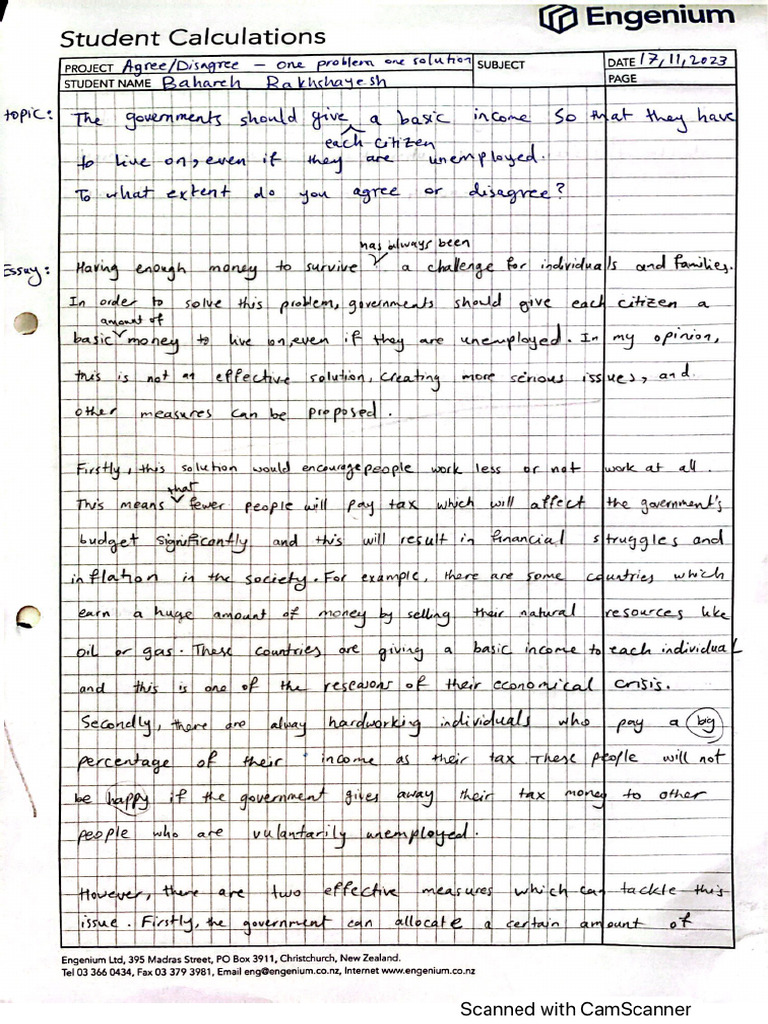 Engenium
Student Calculations
PROJECT Agree/Disagree – one problem one solution SUBJECT DATE 17,11,2023
STUDENT NAME Bahareh Rakhshayesh PAGE
topic: The governments should give a basic income so that they have
each citizen
to live on, even if they are unemployed.
To what extent do you agree or disagree?
has always been
Essay: Having enough money to survive a challenge for individuals and families.
In order to solve this problem, governments should give each citizen a
amount of
basic money to live on, even if they are unemployed. In my opinion,
this is not an effective solution, creating more serious issues, and
other measures can be proposed.
Firstly, this solution would encourage people work less or not work at all.
that
This means fewer people will pay tax which will affect the government's
budget significantly and this will result in financial struggles and
inflation in the society. For example, there are some countries which
earn a huge amount of money by selling their natural resources like
oil or gas. These countries are giving a basic income to each individual
and this is one of the reseaons of their economical crisis.
Secondly, there are alway hardworking individuals who pay a big
percentage of their income as their tax These people will not
be happy if the government gives away their tax money to other
people who are vulantarily unemployed.
However, there are two effective measures which can tackle this
issue. Firstly, the government can allocate a certain amount of
Engenium Ltd, 395 Madras Street, PO Box 3911, Christchurch, New Zealand.
Tel 03 366 0434, Fax 03 379 3981, Email eng@engenium.co.nz, Internet www.engenium.co.nz
Scanned with CamScanner